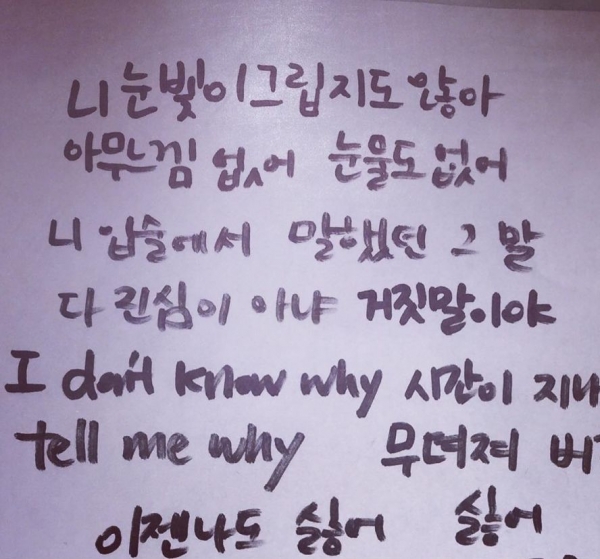 니 눈빛이 그립지도 않아
아무느낌 없어 눈물도 없어
니 입술에서 말했던 그 말
다 진심이 아냐 거짓말이야
I don't know why 시간이 지나
tell me why 무뎌져 버
이젠 나도 싫어 싫어